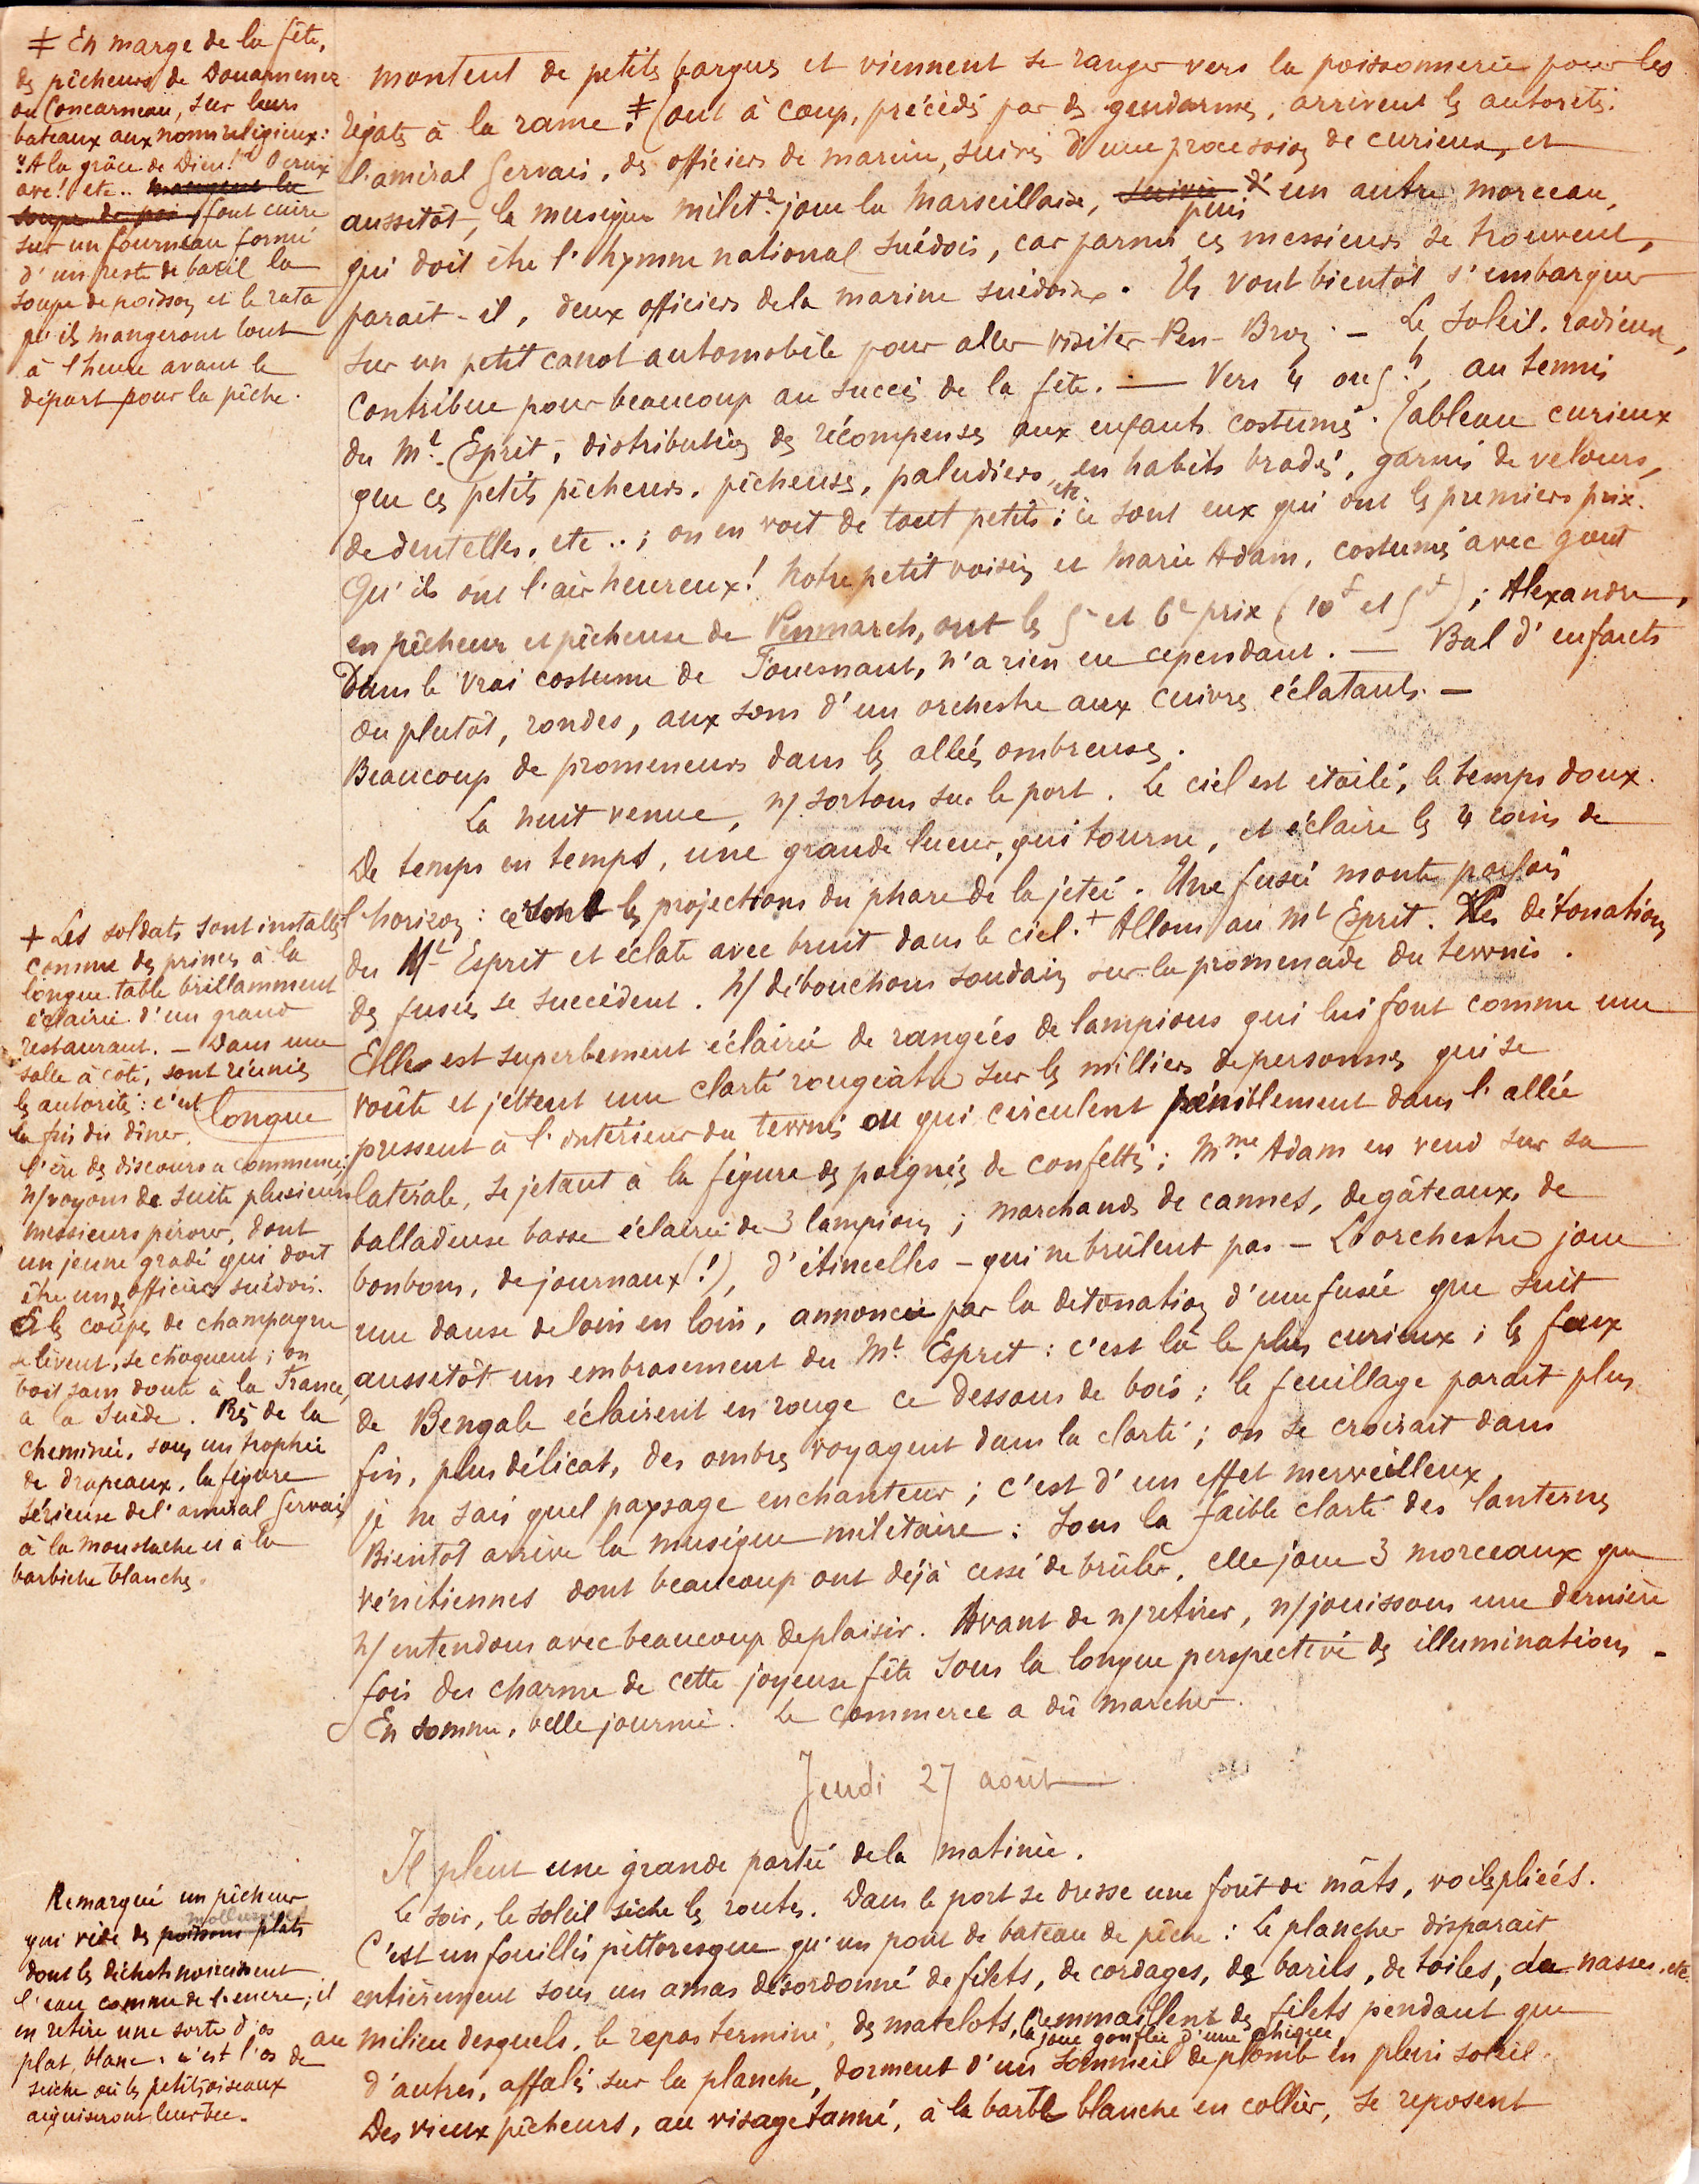 ≠ En marge de la fête,
des pêcheurs de Douarnenez
ou Concarneau, sur leurs
bateaux aux noms religieux :
"A la grâce de Dieu!" "O crux
ave! etc.. mangent la
soupe de poi font cuire
sur un fourneau formé
d'un reste de baril la
soupe de poisson et le rata
qu'ils mangeront tout
à l'heure avant le
départ pour la pêche.
montent de petites barques et viennent se ranger vers la poissonnerie pour les
régates à la rame. ≠ Tout à coup, précédés par des gendarmes, arrivent les autorités :
l'amiral Gervais, des officiers de marine, suivis d'une procession de curieux, et
aussitôt, la musique milit.re joue la Marseillaise, suivie d' puis un autre morceau,
qui doit être l'hymne national suédois, car parmi ces messieurs se trouvent,
paraît-il, deux officiers de la marine suédoise. Ils vont bientôt s'embarquer
sur un petit canot automobile pour aller visiter Pen-Bron. — Le soleil, radieux,
contribue pour beaucoup au succès de la fête. — Vers 4 ou 5 h, au tennis
du Mt. Esprit, distribution des récompenses aux enfants costumés. Tableau curieux
que ces petits pêcheurs, pêcheuses, paludiers, etc en habits brodés, garnis de velours,
de dentelles, etc..; on en voit de tout petits : ce sont eux qui ont les premiers prix.
Qu'ils ont l'air heureux! Notre petit voisin et Marie Adam, costumés avec goût
en pêcheur et pêcheuse de Penmarch, ont les 5 et 6e prix (10f et 5f); Alexandre,
Dans le vrai costume de Fouesnant, n'a rien eu cependant. — Bal d'enfants
ou plutôt, rondes, aux sons d'un orchestre aux cuivres éclatants. —
Beaucoup de promeneurs dans les allées ombreuses.
La nuit venue, n/ sortons sur le port. Le ciel est étoilé, le temps doux.
De temps en temps, une grande lueur, qui tourne, et éclaire les 4 coins de
l'horizon : ce sont les projections du phare de la jetée. Une fusée monte parfois
du Mt Esprit et éclate avec bruit dans le ciel. + Allons au Mt Esprit. Les détonations
des fusées se succèdent. N/ débouchons soudain sur la promenade du tennis.
Elle est superbement éclairée de rangées de lampions qui lui font comme une
longue
voûte et jettent une clarté rougeâtre sur les milliers de personnes qui se
pressent à l'intérieur du tennis ou qui circulent péniblement dans l'allée
latérale, se jetant à la figure des poignées de confetti; Mme Adam en vend sur sa
balladeuse basse éclairée de 3 lampions; marchands de cannes, de gâteaux, de
bonbons, de journaux(!), d'étincelles – qui ne brûlent pas – L'orchestre joue
une danse de loin en loin, annoncée par la détonation d'une fusée que suit
aussitôt un embrasement du Mt Esprit : c'est là le plus curieux; les feux
de Bengale éclairent en rouge ce dessous de bois; le feuillage paraît plus
fin, plus délicat, des ombres voyagent dans la clarté; on se croirait dans
je ne sais quel paysage enchanteur; c'est d'un effet merveilleux.
Bientôt arrive la musique militaire : sous la faible clarté des lanternes
vénitiennes dont beaucoup ont déjà cessé de brûler, elle joue 3 morceaux que
n/ entendons avec beaucoup de plaisir. Avant de n/ retirer, n/ jouissons une dernière
fois du charme de cette joyeuse fête sous la longue perspective des illuminations.
En somme, belle journée. Le commerce a dû marcher.
+ Les soldats sont installés
comme des princes à la
longue table brillamment
éclairée d'un grand
restaurant. – Dans une
salle à côté, sont réunies
les autorités : c'est
la fin du dîner.
l'ère des discours a commencé;
n/ voyons de suite plusieurs
messieurs pérorer, dont
un jeune gradé qui doit
être un des officiers suédois.
Et les coupes de champagne
se lèvent, se choquent; on
boit sans doute à la France,
à la Suède. Près de la
cheminée, sous un trophée
de drapeaux, la figure
sérieuse de l'amiral Gervais
à la moustache et à la
barbiche blanches.
Jeudi 27 août
Il pleut une grande partie de la matinée.
Le soir, le soleil sèche les routes. Dans le port se dresse une forêt de mâts, voiles pliées.
C'est un fouillis pittoresque qu'un pont de bateau de pêche : le plancher disparaît
entièrement sous un amas désordonné de filets, de cordages, de barils, de toiles, de nasses, etc.
au milieu desquels, le repas terminé, des matelots, la joue gonflée d'une chique, remmaillent des filets pendant que
d'autres, affalés sur la planche, dorment d'un sommeil de plomb en plein soleil.
Des vieux pêcheurs, au visage tanné, à la barbe blanche en collier, se reposent
Remarqué un pêcheur
qui vide des poissons plats mollusques
dont les déchets noircissent
l'eau comme de l'encre; il
en retire une sorte d'os
plat, blanc. c'est l'os de
seiche où les petits oiseaux
aiguiseront leur bec.